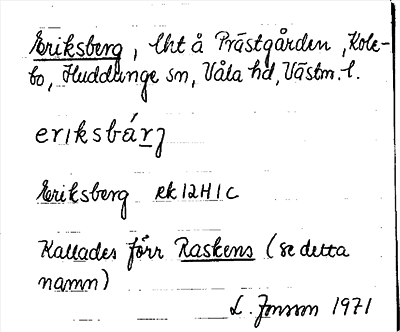 Eriksberg, lht å Prästgården, Kole-
bo, Huddunge sn, Våla hd, Västm. l.
eriksbárj
Eriksberg ek 12H1c
Kallades förr Raskens (se detta
namn)
L. Jonsson 1971